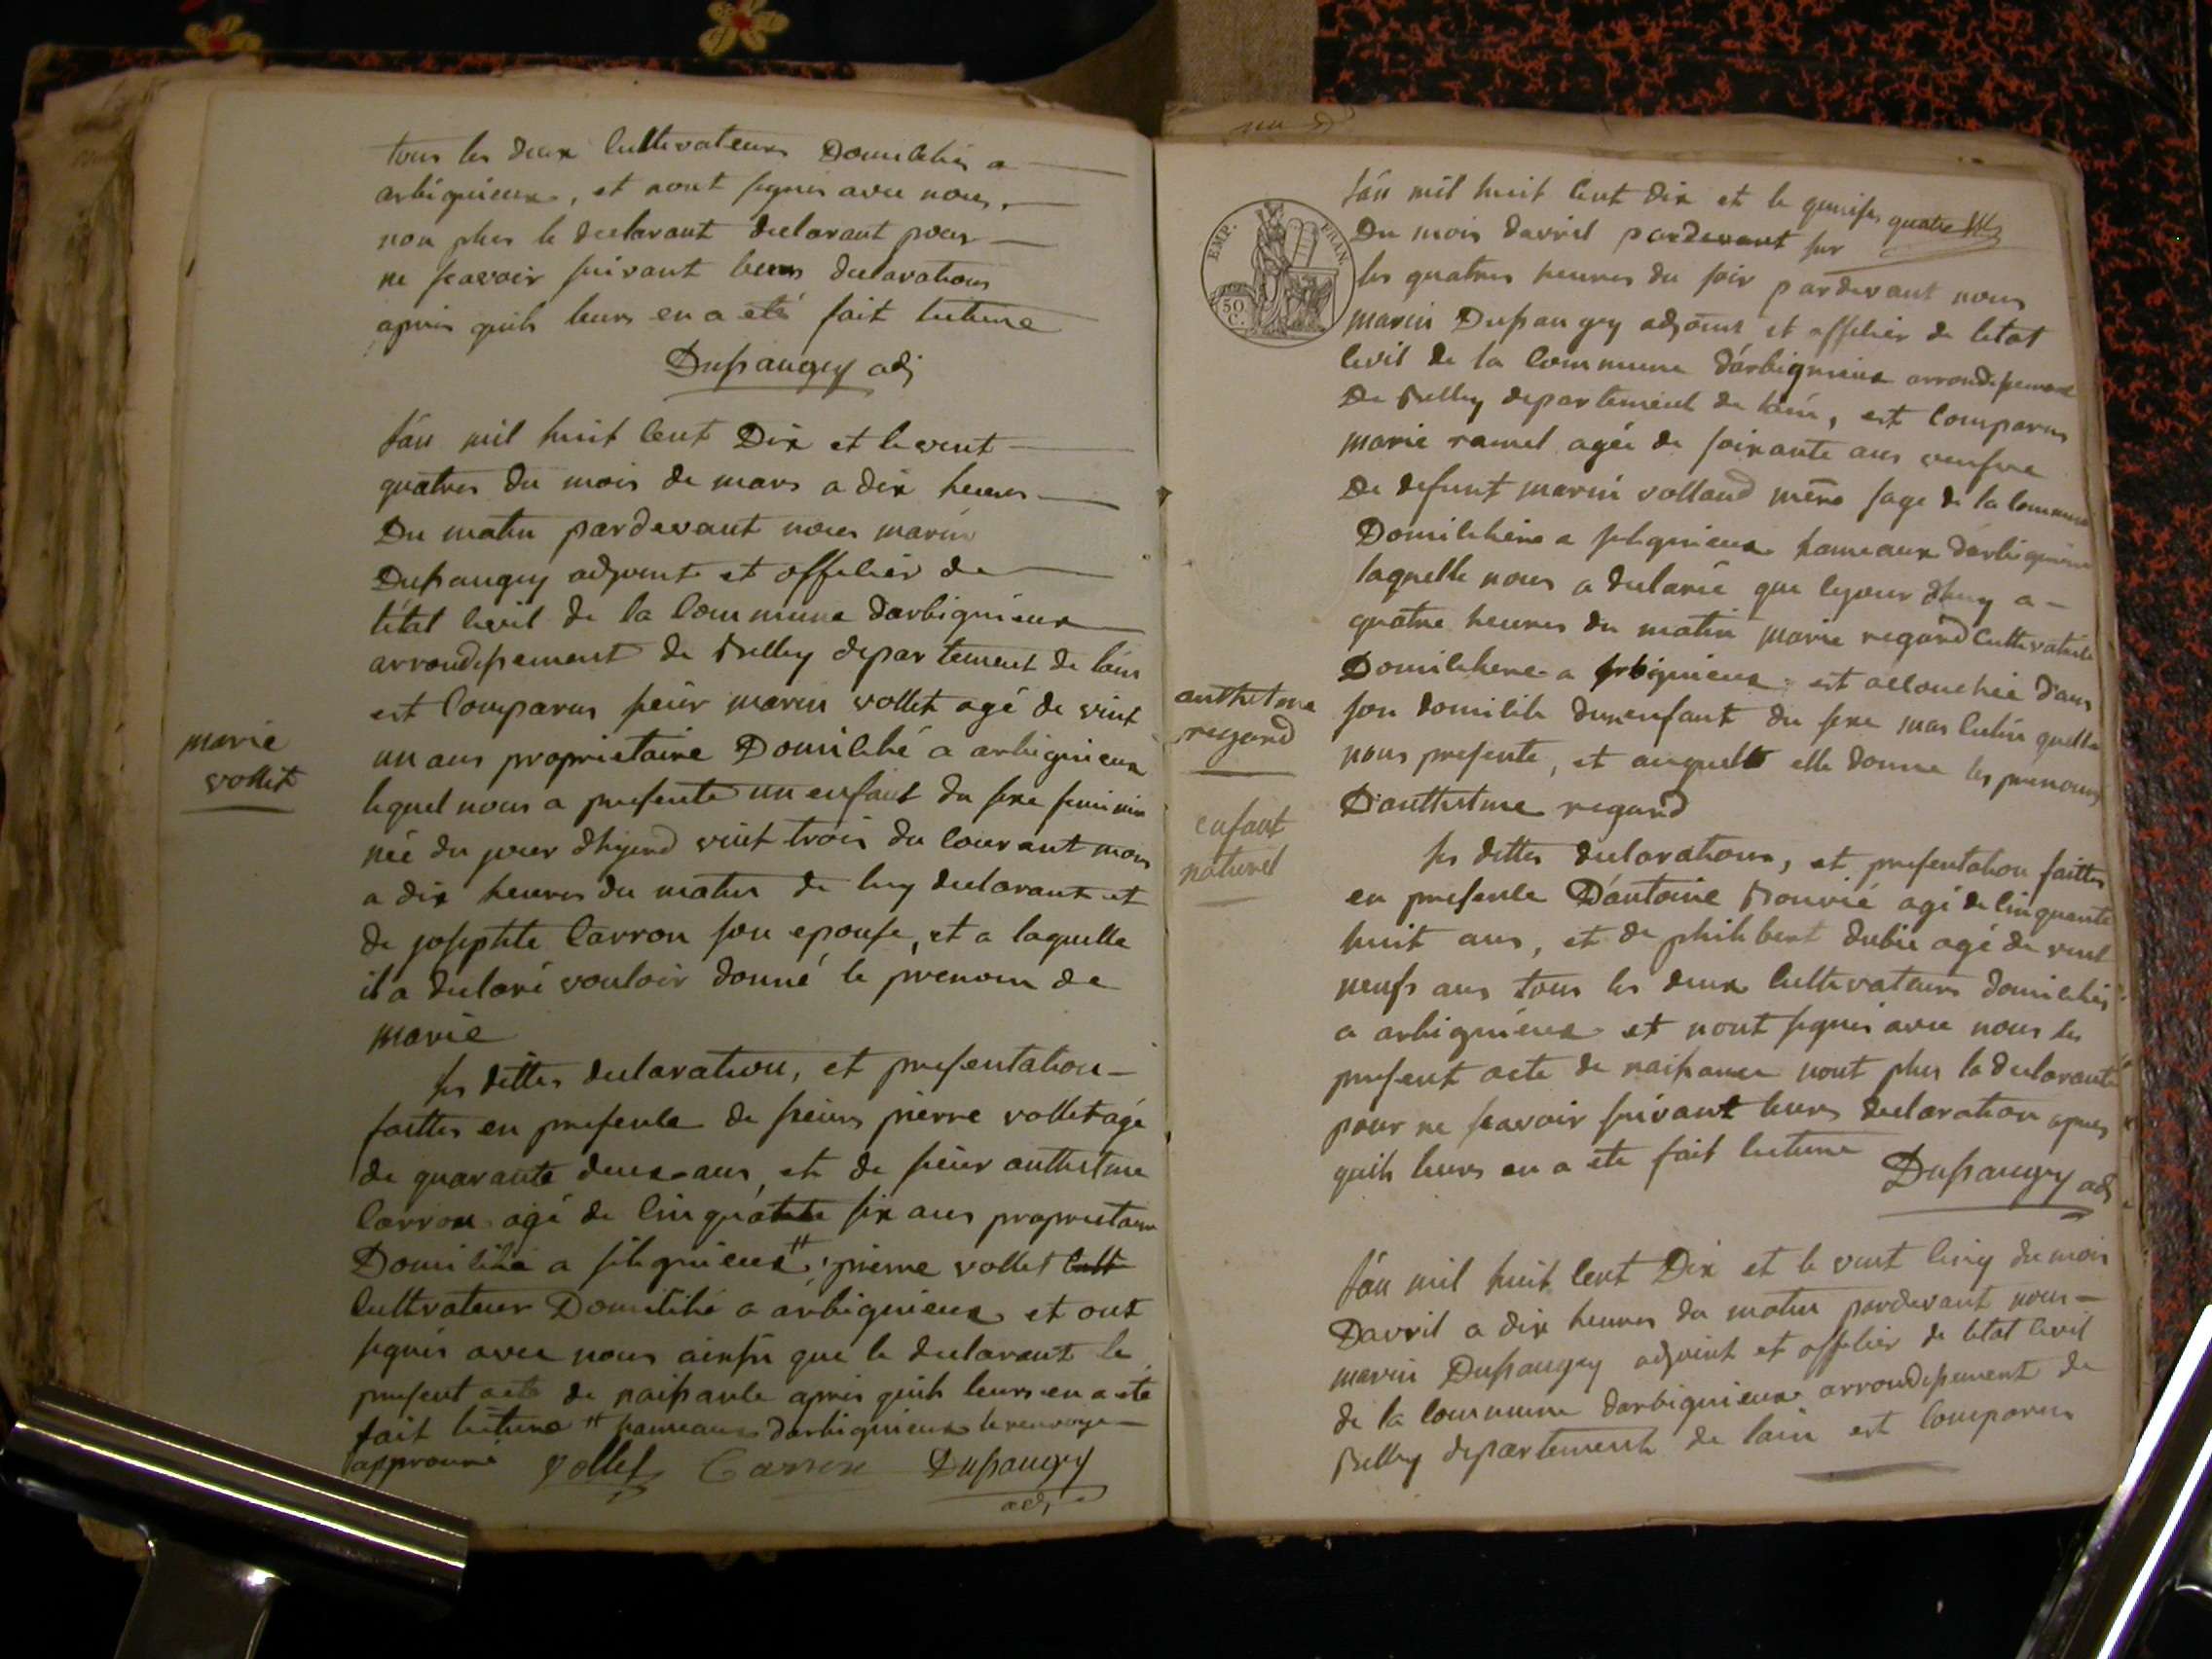 tous les deux Cultivateurs Domiciliés a
arbignieux, et nont signés avec nous,
non plus le declarant declarant pour
ne scavoir suivant leurs declarations
apres quils leurs en a eté fait lecture
Dupaugey adj
marie
vollet
lan mil huit Cent Dix et le vint
quatres du mois de mars a dix heures
Du matin pardevant nous marin
Dupaugey adjoint et officier de
l'état Civil de la Commune d'arbignieux
arrondissement de Belley departement de lain
est Comparus sieur marin vollet agé de vint
un ans proprietaire Domicilié a arbignieux
lequel nous a presenté un enfant du sexe feminin
née du jour dhyerd vint trois du Courant mois
a dix heures du matin de luy declarant et
de josephte Carron son epouse, et a laquelle
il a declaré vouloir donné le prenom de
marie
les dittes declaration, et presentation
faittes en presence de sieurs pierre vollet agé
de quarante deux ans, et de sieur anthelme
Carron agé de Cinquante six ans proprietaire
Domicilié a silignieux # pierre vollet Cult
Cultivateur Domicilié a arbignieux et ont
signés avec nous ainsi que le declarant le
present acte de naissance apres quils leurs en a eté
fait lecture # hameaux darbignieux le renvoye
approuvé vollet Carron Dupaugey
adj
EMP. FRAN.
50
C.
anthelme
regard
enfant
naturel
lan mil huit Cent dix et le quinses quatre
Du mois davril pardevant sur
les quatres heures du soir pardevant nous
marin Dupaugey adjoint et officier de letat
Civil de la Commune d'arbignieux arrondissement
De Belley departement de lain, est Comparus
marie ramel agée de soixante ans veufve
De defunt marin volland mère sage de la Commune
Domiciliere a silignieux hameaux darbignieux
laquelle nous a declarée que le jour dhuy a
quatre heures du matin marie regard Cultivatrice
Domiciliere a arbignieux est accouchée dans
son domicile dun enfant du sexe masculin quelle
nous presente, et auquelle elle donne les prenoms
D'anthelme regard
les dittes declarations, et presentation faittes
en presence D'antoine Bouvié agé de Cinquante
huit ans, et de philibert dubie agé de vint
neufs ans tous les deux Cultivateurs domiciliés
a arbignieux et nont signés avec nous les
present acte de naissance nont plus la declarante
pour ne scavoir suivant leurs declaration apres
quils leurs en a eté fait lecture Dupaugey adj
lan mil huit Cent Dix et le vint Cinq du mois
Davril a dix heures du matin pardevant nous
marin Dupaugey adjoint et officier de letat Civil
de la Commune darbignieux arrondissement de
Belley departement de lain est Comparus